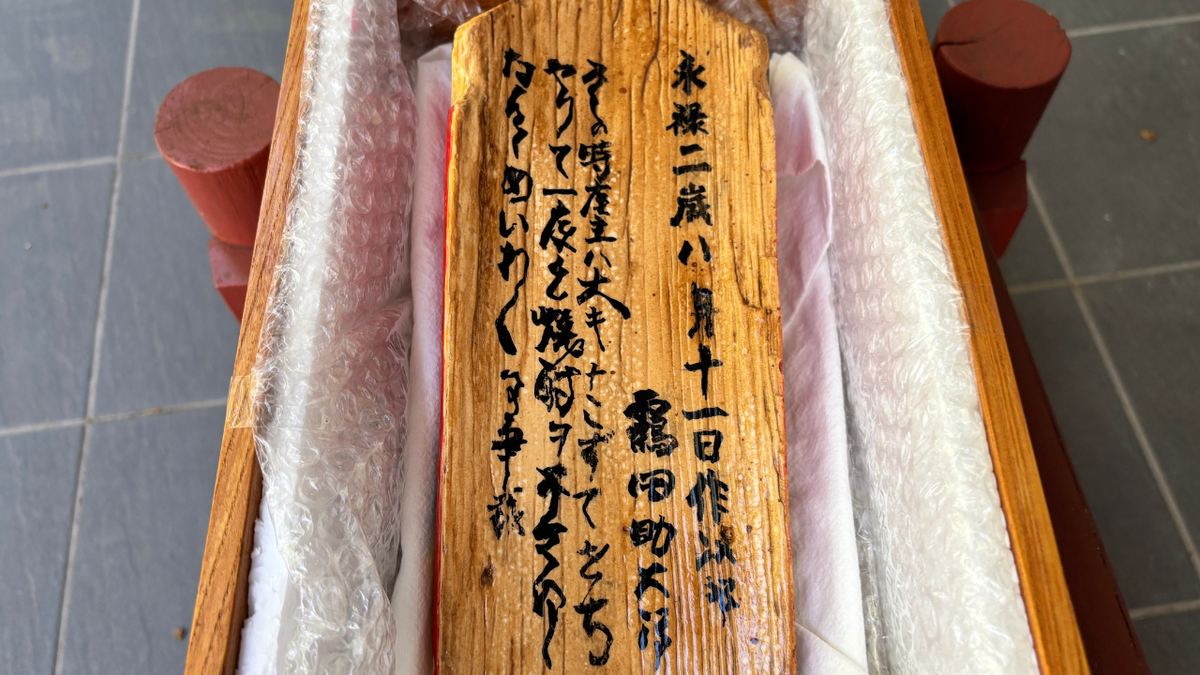 永禄二歳八月十一日作次郎
鶴田助太郎
其の時座主ハ大キナこすてをち
やりて一度も焼酎ヲ不被下候
何共めいわくな事哉